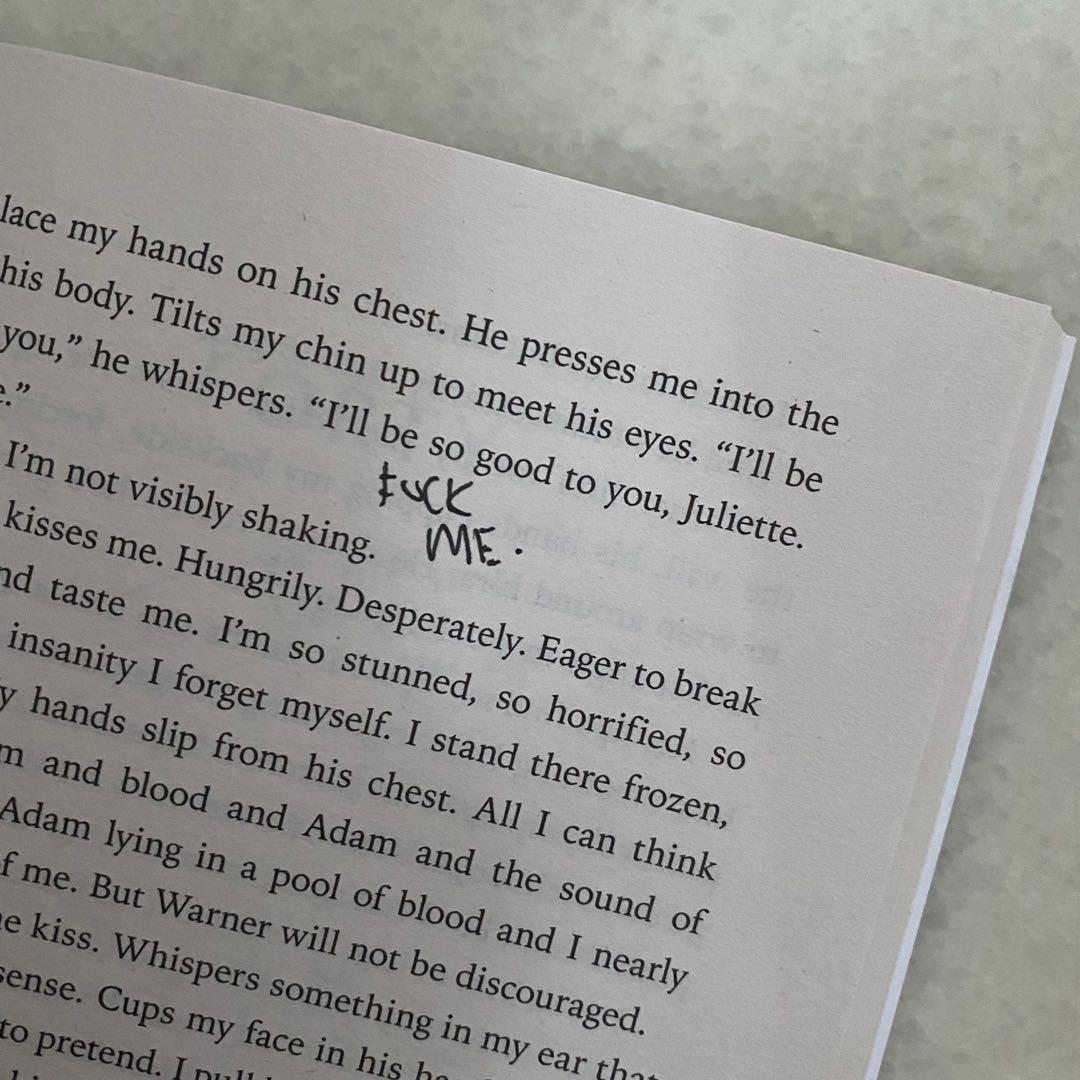 lace my hands on his chest. He presses me into the
his body. Tilts my chin up to meet his eyes. “I’ll be
you,” he whispers. “I’ll be so good to you, Juliette.
e.”
FUCK
I’m not visibly shaking.
ME.
kisses me. Hungrily. Desperately. Eager to break
nd taste me. I’m so stunned, so horrified, so
insanity I forget myself. I stand there frozen,
y hands slip from his chest. All I can think
m and blood and Adam and the sound of
Adam lying in a pool of blood and I nearly
f me. But Warner will not be discouraged.
e kiss. Whispers something in my ear that
sense. Cups my face in his
to pretend. I